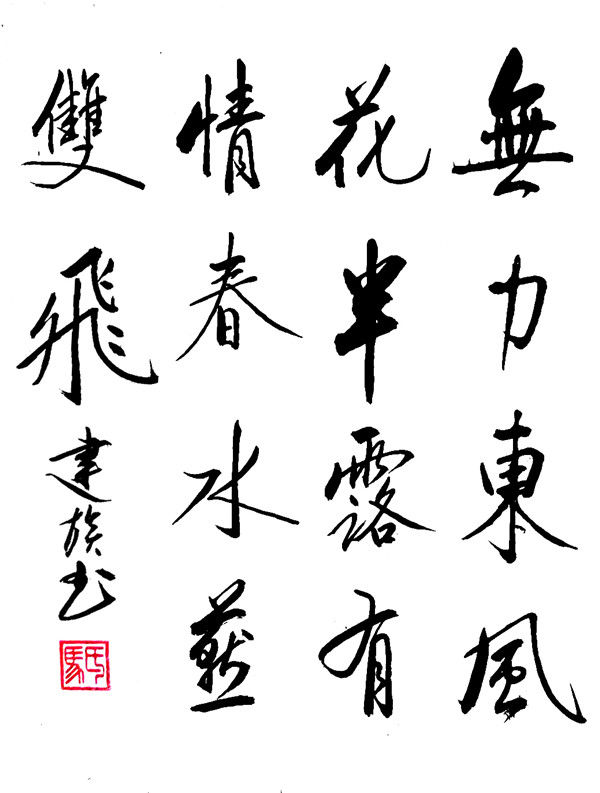 無力東風
花半露有
情春水燕
雙飛
建族书
馬氏